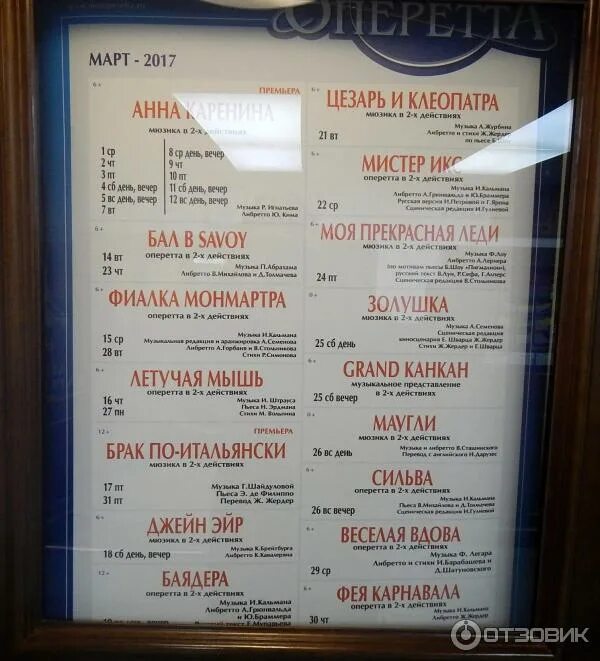 ОПЕРЕТТА
МАРТ - 2017
6+
ПРЕМЬЕРА
АННА КАРЕНИНА
мюзикл в 2-х действиях
1 ср
2 чт
3 пт
4 сб день, вечер
5 вс день, вечер
7 вт
8 ср день, вечер
9 чт
10 пт
11 сб день, вечер
12 вс день, вечер
Музыка Р. Игнатьева
Либретто Ю. Кима
6+
БАЛ В SAVOY
оперетта в 2-х действиях
14 вт
23 чт
Музыка П.Абрахама
Либретто В.Михайлова и Д.Толмачева
6+
ФИАЛКА МОНМАРТРА
оперетта в 2-х действиях
15 ср
28 вт
Музыка И.Кальмана
Музыкальная редакция и аранжировка А.Семенова
Либретто А.Горбаня и В.Стольникова
Стихи Р.Симонова
ЛЕТУЧАЯ МЫШЬ
оперетта в 2-х действиях
16 чт
27 пн
Музыка И. Штрауса
Пьеса Н. Эрдмана
Стихи М. Вольпина
12+
ПРЕМЬЕРА
БРАК ПО-ИТАЛЬЯНСКИ
мюзикл в 2-х действиях
17 пт
31 пт
Музыка Г.Шайдуловой
Пьеса Э. де Филиппо
Перевод Ж. Жердер
6+
ДЖЕЙН ЭЙР
мюзикл в 2-х действиях
18 сб день, вечер
Музыка К.Брейтбурга
Либретто К.Кавалеряна
12+
БАЯДЕРА
оперетта в 2-х действиях
Музыка И.Кальмана
Либретто А.Грюнвальда
и Ю.Браммера
6+
ЦЕЗАРЬ И КЛЕОПАТРА
мюзикл в 2-х действиях
21 вт
Музыка А.Журбина
Либретто и стихи Ж.Жердер
по пьесе Б.Шоу
6+
МИСТЕР ИКС
оперетта в 2-х действиях
22 ср
Музыка И.Кальмана
Либретто А.Грюнвальда и Ю.Браммера
Русская версия И.Петровой и Г.Ярона
Сценическая редакция И.Гулиевой
6+
МОЯ ПРЕКРАСНАЯ ЛЕДИ
мюзикл в 2-х действиях
24 пт
Музыка Ф.Лоу
Либретто А.Лернера
(по мотивам пьесы Б.Шоу «Пигмалион»),
русский текст В.Луи, Р.Сефа, Г.Алперс
Сценическая редакция В.Стольникова
0+
ЗОЛУШКА
мюзикл в 2-х действиях
25 сб день
Музыка А.Семенова
Сценическая редакция
киносценария Е. Шварца Ж.Жердер
Стихи Ж.Жердер и Е.Шварца
6+
GRAND КАНКАН
музыкальное представление
в 2-х действиях
25 сб вечер
МАУГЛИ
мюзикл в 2-х действиях
26 вс день
Музыка и либретто В.Сташинского
Перевод с английского И.Дарузес
6+
СИЛЬВА
оперетта в 2-х действиях
26 вс вечер
Музыка И.Кальмана
Пьеса В.Михайлова и Д.Толмачева
Сценическая редакция И.Гулиевой
6+
ВЕСЕЛАЯ ВДОВА
оперетта в 2-х действиях
29 ср
Музыка Ф. Легара
Либретто и стихи И.Барабашева и
Д.Шатуновского
6+
ФЕЯ КАРНАВАЛА
оперетта в 2-х действиях
30 чт
Музыка И.Кальмана
Либретто Ж.Жердер
ОТЗОВИК